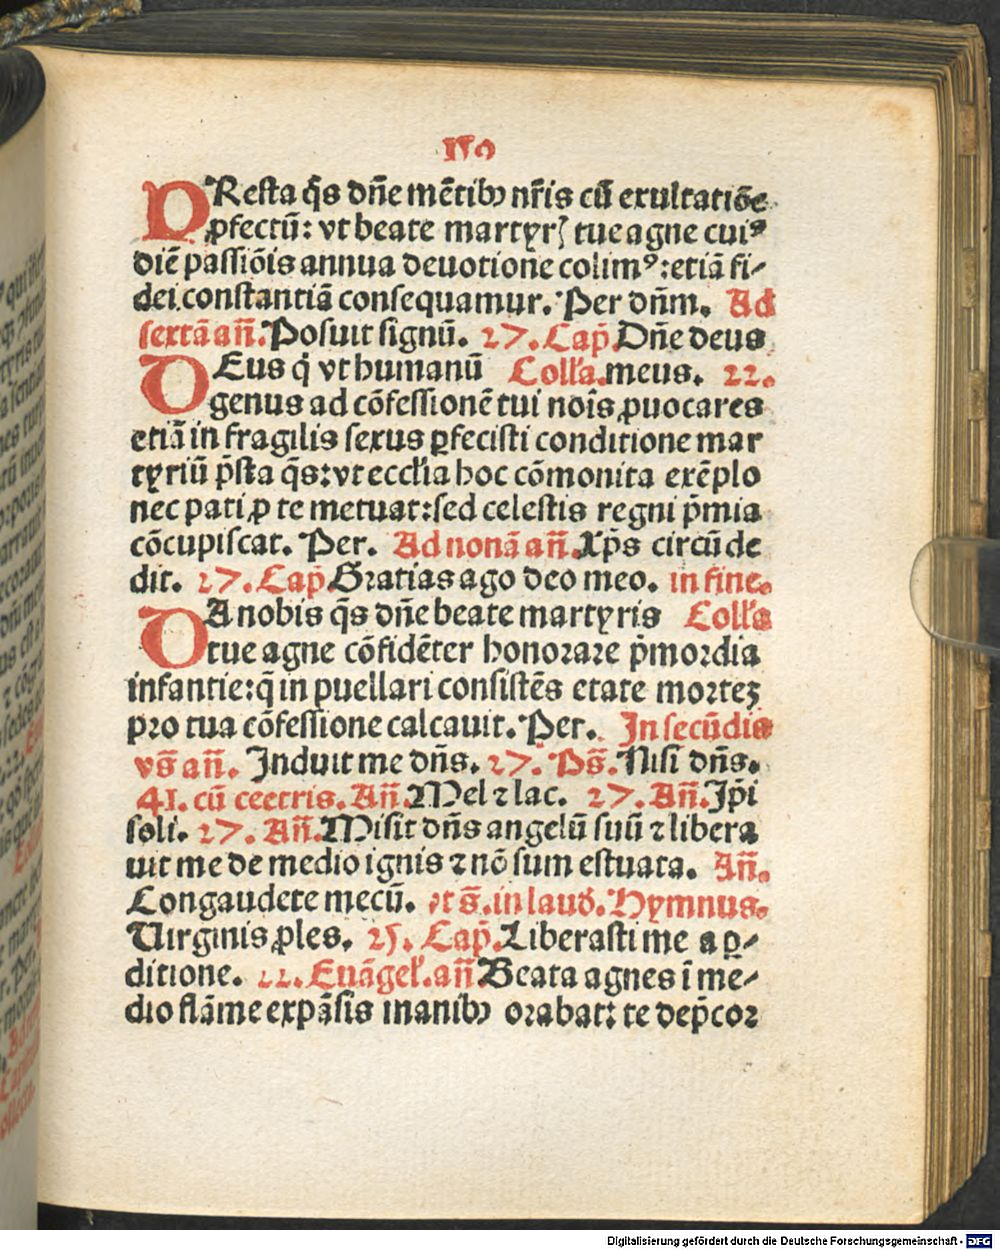 150
PResta q̄s dn̄e mētibꝰ nr̄is cū exultatiōe
ꝓfectū: vt beate martyrꝭ tue agne cuiꝰ
diē passiōis annua deuotione colimꝰ:etiā fi-
dei constantiā consequamur. Per dn̄m. Ad
sextā an̄. Posuit signū. 27. Cap̄. Dn̄e deus
DEus q̇ vt humanū Coll'a. meus. 22.
genus ad cōfessionē tui nois̄ ꝓuocares
etiā in fragilis sexus ꝑfecisti conditione mar
tyriū p̄sta q̄s: vt eccl'ia hoc cōmonita exēplo
nec pati ꝓ te metuat: sed celestis regni p̄mia
cōcupiscat. Per. Ad nonā an̄. Xp̄s circūde
dit. 27. Cap̄. Gratias ago deo meo. in fine.
DA nobis q̄s dn̄e beate martyris Coll'a
tue agne cōfidēter honorare p̄mordia
infantie: q̄ in puellari consistēs etate mortēꝫ
pro tua cōfessione calcauit. Per. In secūdis
vs̄ an̄. Induit me dn̄s. 27. Ps̄. Nisi dn̄s.
41. cū ceetris. An̄. Mel ⁊ lac. 27. An̄. Ip̄i
soli. 27. An̄. Misit dn̄s angelū suū ⁊ libera
uit me de medio ignis ⁊ nō sum estuata. An̄.
Congaudete mecū. et s̄. in laud̄. Hymnus.
Virginis ꝓles. 25. Cap̄. Liberasti me a ꝑ-
ditione. 22. Euāgel'. an̄ Beata agnes ī me-
dio flāme expāsis manibꝰ orabat: te dep̄cor
Digitalisierung gefördert durch die Deutsche Forschungsgemeinschaft - DFG